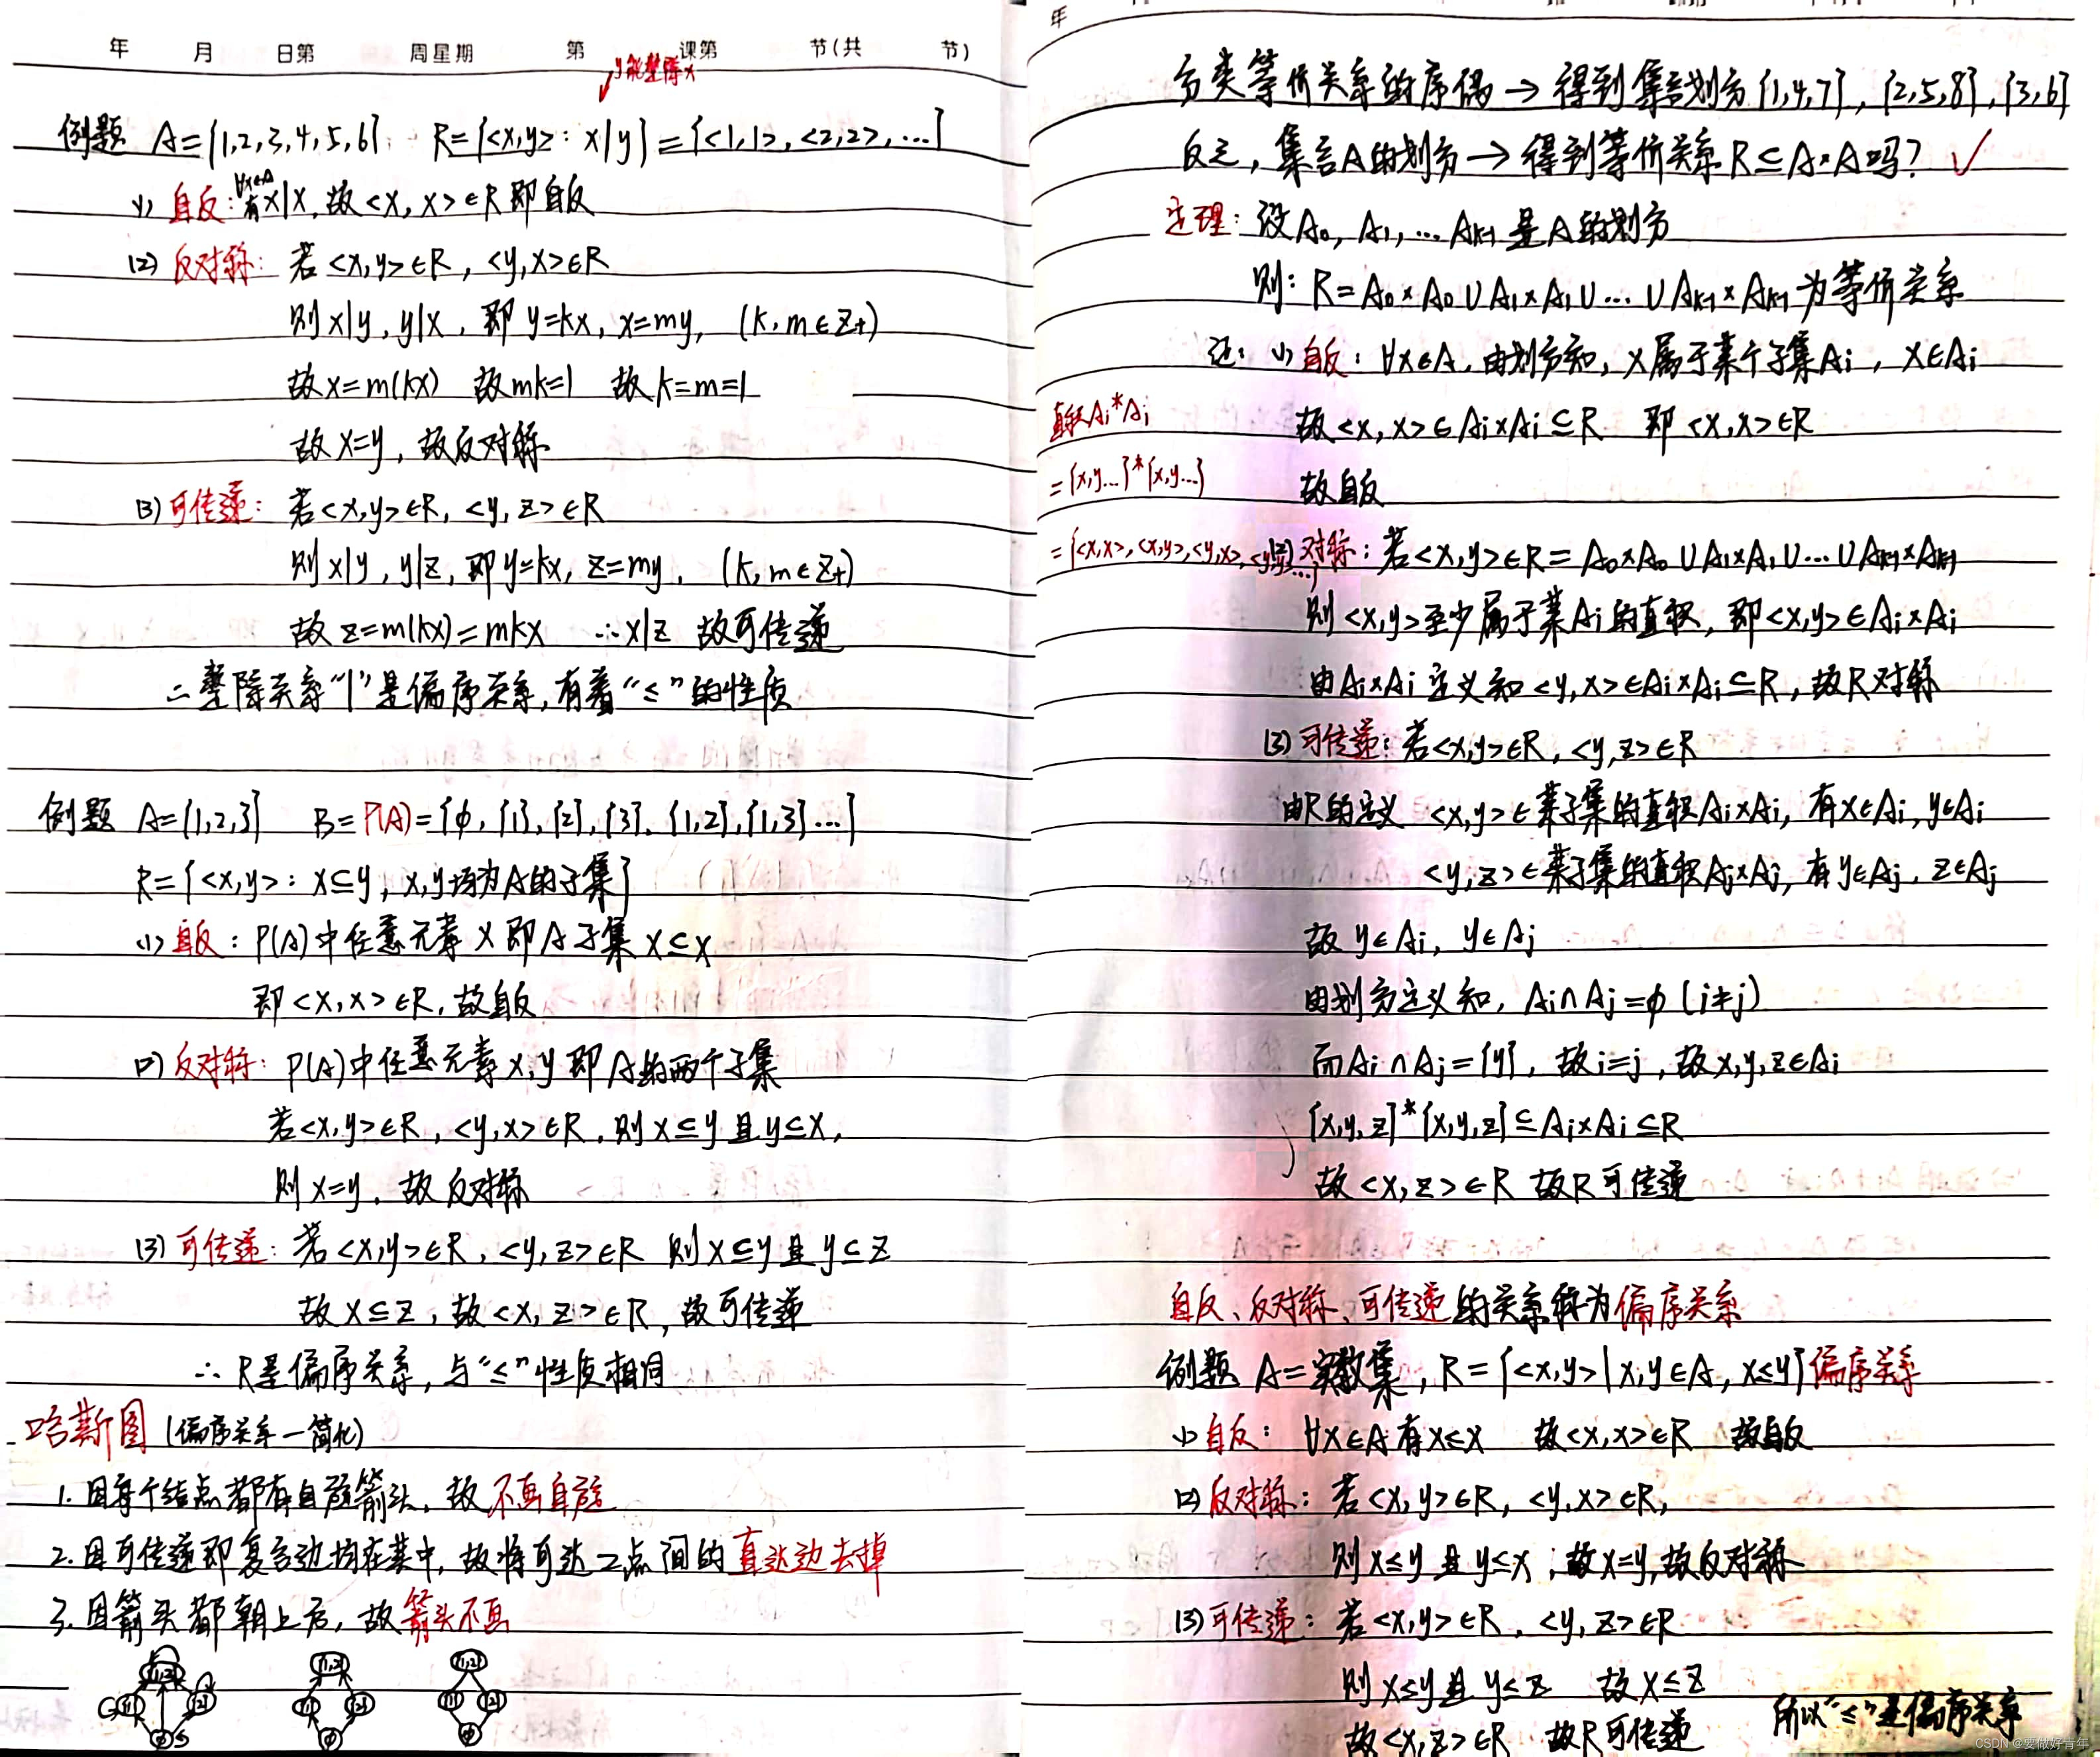 年 月 日第 周星期 第 课第 节(共 节)
y能整除x
例题 A={1,2,3,4,5,6} R={<x,y>: x|y}={<1,1>,<2,2>,...}
(1) 自反: ∀x∈A 有x|x, 故<x,x>∈R 即自反
(2) 反对称: 若<x,y>∈R, <y,x>∈R
则x|y, y|x, 即y=kx, x=my, (k,m∈Z+)
故x=m(kx) 故mk=1 故k=m=1
故x=y, 故反对称
(3) 可传递: 若<x,y>∈R, <y,z>∈R
则x|y, y|z, 即y=kx, z=my, (k,m∈Z+)
故z=m(kx)=mkx ∴x|z 故可传递
∴整除关系"|"是偏序关系,有着"≤"的性质
例题 A={1,2,3} B=P(A)={φ,{1},{2},{3},{1,2},{1,3}...}
R={<x,y>: x⊆y, x,y均为A的子集}
(1) 自反: P(A)中任意元素x即A子集 x⊆x
即<x,x>∈R, 故自反
(2) 反对称: P(A)中任意元素x,y即A的两个子集
若<x,y>∈R, <y,x>∈R, 则x⊆y且y⊆x,
则x=y, 故反对称
(3) 可传递: 若<x,y>∈R, <y,z>∈R 则x⊆y且y⊆z
故x⊆z, 故<x,z>∈R, 故可传递
∴R是偏序关系, 与"≤"性质相同
哈斯图(偏序关系—简化)
1. 因每个结点都有自旋箭头, 故不画自旋
2. 因可传递即复合边均在其中, 故将可达二点间的直达边去掉
3. 因箭头都朝上方, 故箭头不画
{1,2} {1} {2} φ
{1,2} {1} {2} φ
{1,2} {1} {2} φ
年
分类等价关系的序偶→得到集合划分{1,4,7},{2,5,8},{3,6}
反之, 集合A的划分→得到等价关系R⊆A×A吗? ✓
定理: 设A0, A1, ... Ak-1是A的划分
则: R=A0×A0∪A1×A1∪...∪Ak-1×Ak-1为等价关系
证: (1) 自反: ∀x∈A, 由划分知, x属于某个子集Ai, x∈Ai
故<x,x>∈Ai×Ai⊆R 即<x,x>∈R
故自反
直积Ai*Ai
={x,y...}*{x,y...}
={<x,x>,<x,y>,<y,x>,<y,y>...}
(2) 对称: 若<x,y>∈R=A0×A0∪A1×A1∪...∪Ak-1×Ak-1
则<x,y>至少属于某Ai的直积, 即<x,y>∈Ai×Ai
由Ai×Ai定义知<y,x>∈Ai×Ai⊆R, 故R对称
(3) 可传递: 若<x,y>∈R, <y,z>∈R
由R的定义 <x,y>∈某子集的直积Ai×Ai, 有x∈Ai, y∈Ai
<y,z>∈某子集的直积Aj×Aj, 有y∈Aj, z∈Aj
故y∈Ai, y∈Aj
由划分定义知, Ai∩Aj=φ (i≠j)
而Ai∩Aj={y}, 故i=j, 故x,y,z∈Ai
{x,y,z}*{x,y,z}⊆Ai×Ai⊆R
故<x,z>∈R 故R可传递
自反、反对称、可传递的关系称为偏序关系
例题 A=实数集, R={<x,y>|x,y∈A, x≤y}偏序关系
(1) 自反: ∀x∈A 有x≤x 故<x,x>∈R 故自反
(2) 反对称: 若<x,y>∈R, <y,x>∈R,
则x≤y且y≤x, 故x=y, 故反对称
(3) 可传递: 若<x,y>∈R, <y,z>∈R
则x≤y且y≤z 故x≤z
故<x,z>∈R 故R可传递
所以"≤"是偏序关系
CSDN @要做好青年